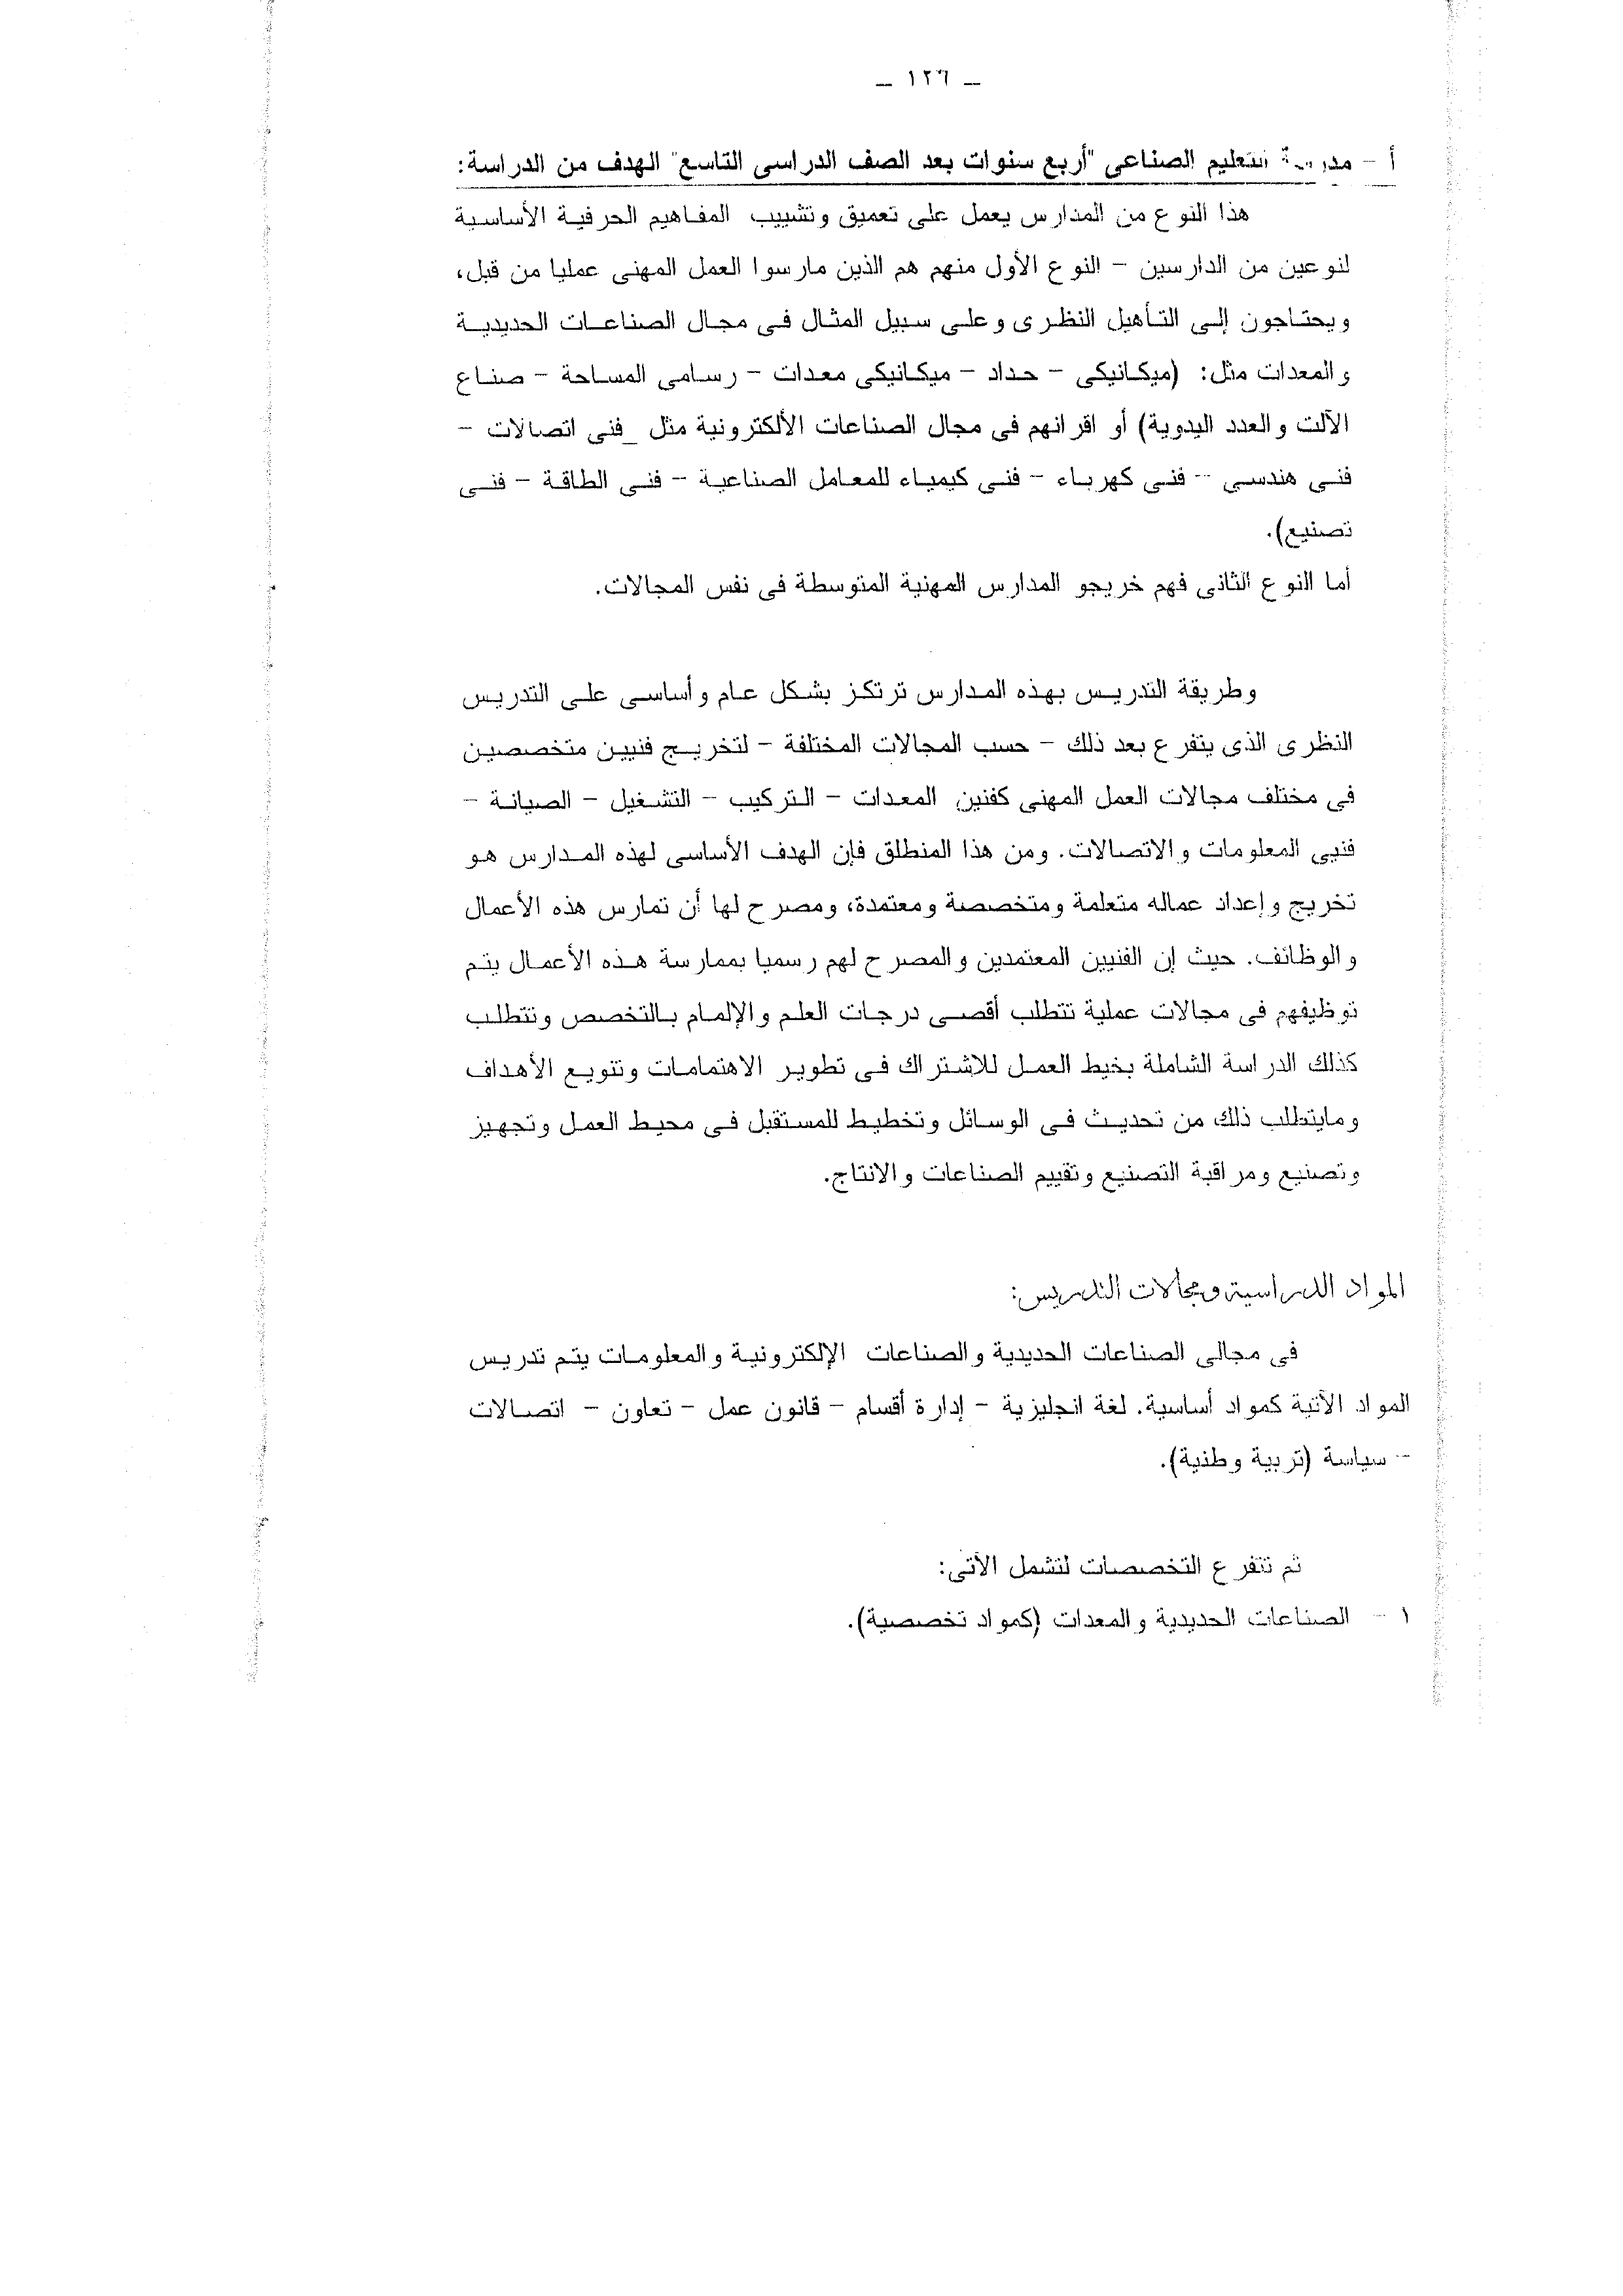 – ١٢٦ –
أ – مدرسة التعليم الصناعى "أربع سنوات بعد الصف الدراسى التاسع" الهدف من الدراسة:
هذا النوع من المدارس يعمل على تعميق وتشييب المفاهيم الحرفية الأساسية
لنوعين من الدارسين – النوع الأول منهم هم الذين مارسوا العمل المهنى عمليا من قبل،
ويحتاجون إلى التأهيل النظرى وعلى سبيل المثال فى مجال الصناعات الحديدية
والمعدات مثل: (ميكانيكى – حداد – ميكانيكى معدات – رسامى المساحة – صناع
الآلت والعدد اليدوية) أو اقرانهم فى مجال الصناعات الألكترونية مثل _فنى اتصالات –
فنى هندسى – فنى كهرباء – فنى كيمياء للمعامل الصناعية – فنى الطاقة – فنى
تصنيع).
أما النوع الثانى فهم خريجو المدارس المهنية المتوسطة فى نفس المجالات.
وطريقة التدريس بهذه المدارس ترتكز بشكل عام وأساسى على التدريس
النظرى الذى يتفرع بعد ذلك – حسب المجالات المختلفة – لتخريج فنيين متخصصين
فى مختلف مجالات العمل المهنى كفنين المعدات – التركيب – التشغيل – الصيانة –
فنيى المعلومات والاتصالات. ومن هذا المنطلق فإن الهدف الأساسى لهذه المدارس هو
تخريج وإعداد عماله متعلمة ومتخصصة ومعتمدة، ومصرح لها أن تمارس هذه الأعمال
والوظائف. حيث إن الفنيين المعتمدين والمصرح لهم رسميا بممارسة هذه الأعمال يتم
توظيفهم فى مجالات عملية تتطلب أقصى درجات العلم والإلمام بالتخصص وتتطلب
كذلك الدراسة الشاملة بخيط العمل للاشتراك فى تطوير الاهتمامات وتنويع الأهداف
ومايتطلب ذلك من تحديث فى الوسائل وتخطيط للمستقبل فى محيط العمل وتجهيز
وتصنيع ومراقبة التصنيع وتقييم الصناعات والانتاج.
المواد الدراسية ومجالات التدريس:
فى مجالى الصناعات الحديدية والصناعات الإلكترونية والمعلومات يتم تدريس
المواد الآتية كمواد أساسية. لغة انجليزية – إدارة أقسام – قانون عمل – تعاون – اتصالات
– سياسة (تربية وطنية).
ثم تتفرع التخصصات لتشمل الأتى:
١ – الصناعات الحديدية والمعدات (كمواد تخصصية).